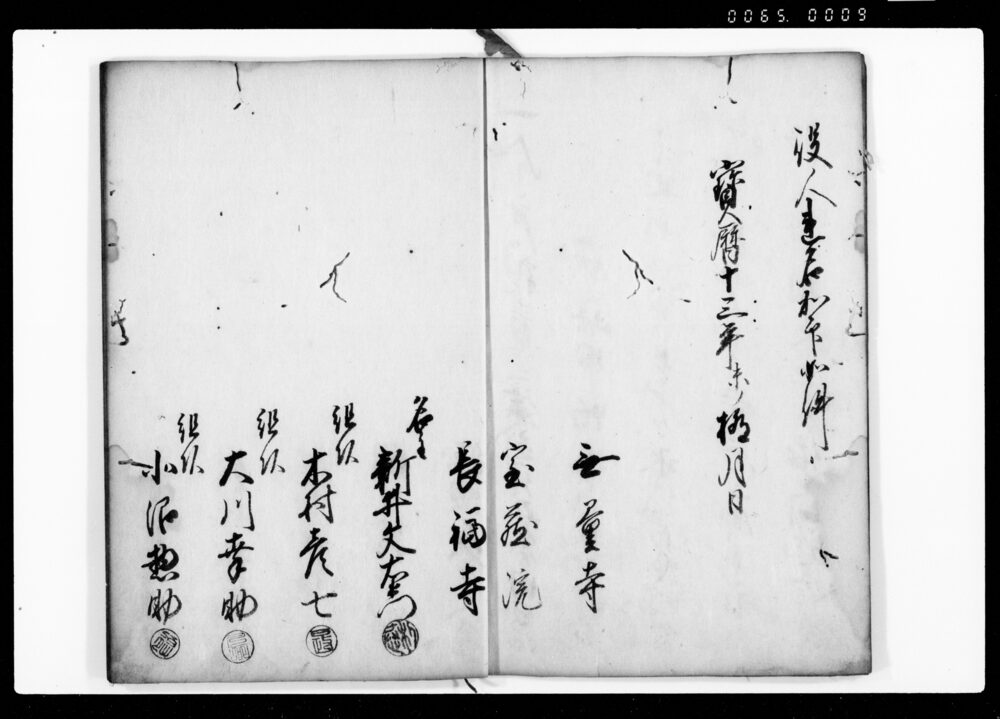 0065. 0009
役人連名如斯
寶暦十三年未ノ極月日
無量寺
宝蔵院
長福寺
名主
新井文右衛門
組頭
木村彦七
組頭
大川幸助
組頭
小沼惣助